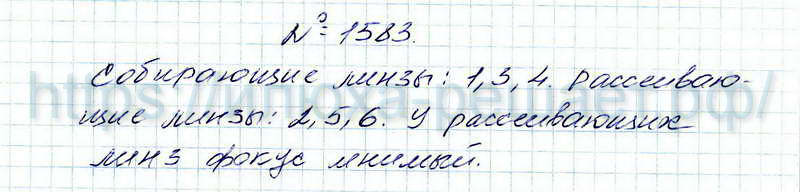 № 1583.
Собирающие линзы: 1,3,4. Рассеиваю-
щие линзы: 2,5,6. У рассеивающих
линз фокус мнимый.